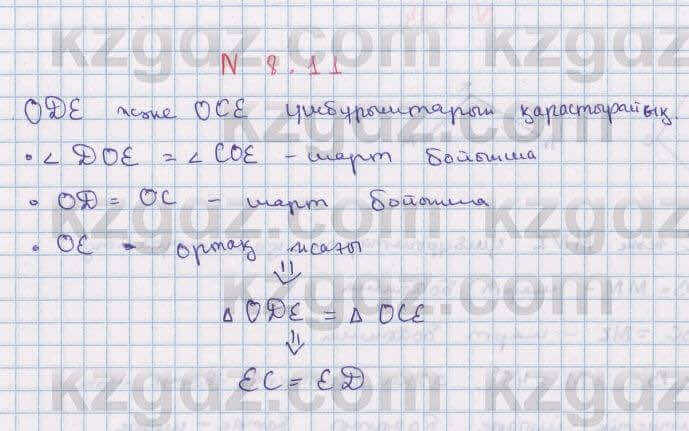 N 8.11
ODE және OCE үшбұрыштарын қарастырайық.
• ∠ DOE = ∠ COE - шарт бойынша
• OD = OC - шарт бойынша
• OE - ортақ жағы
⇓
△ ODE = △ OCE
⇓
EC = ED
kzgdz.com